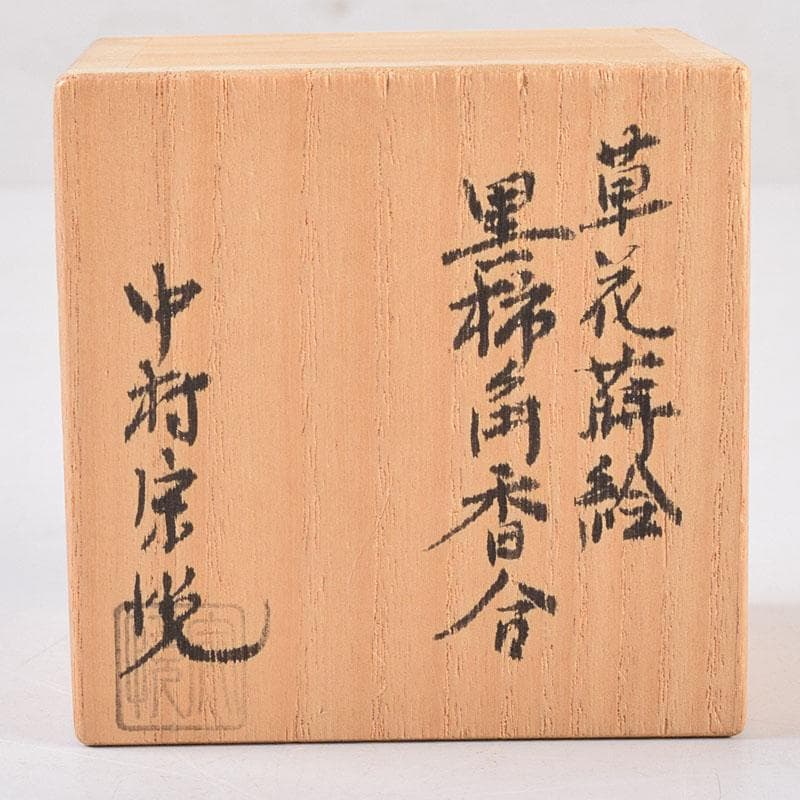 草花蒔絵
黒柿角香合
中村宗悦
宗悦